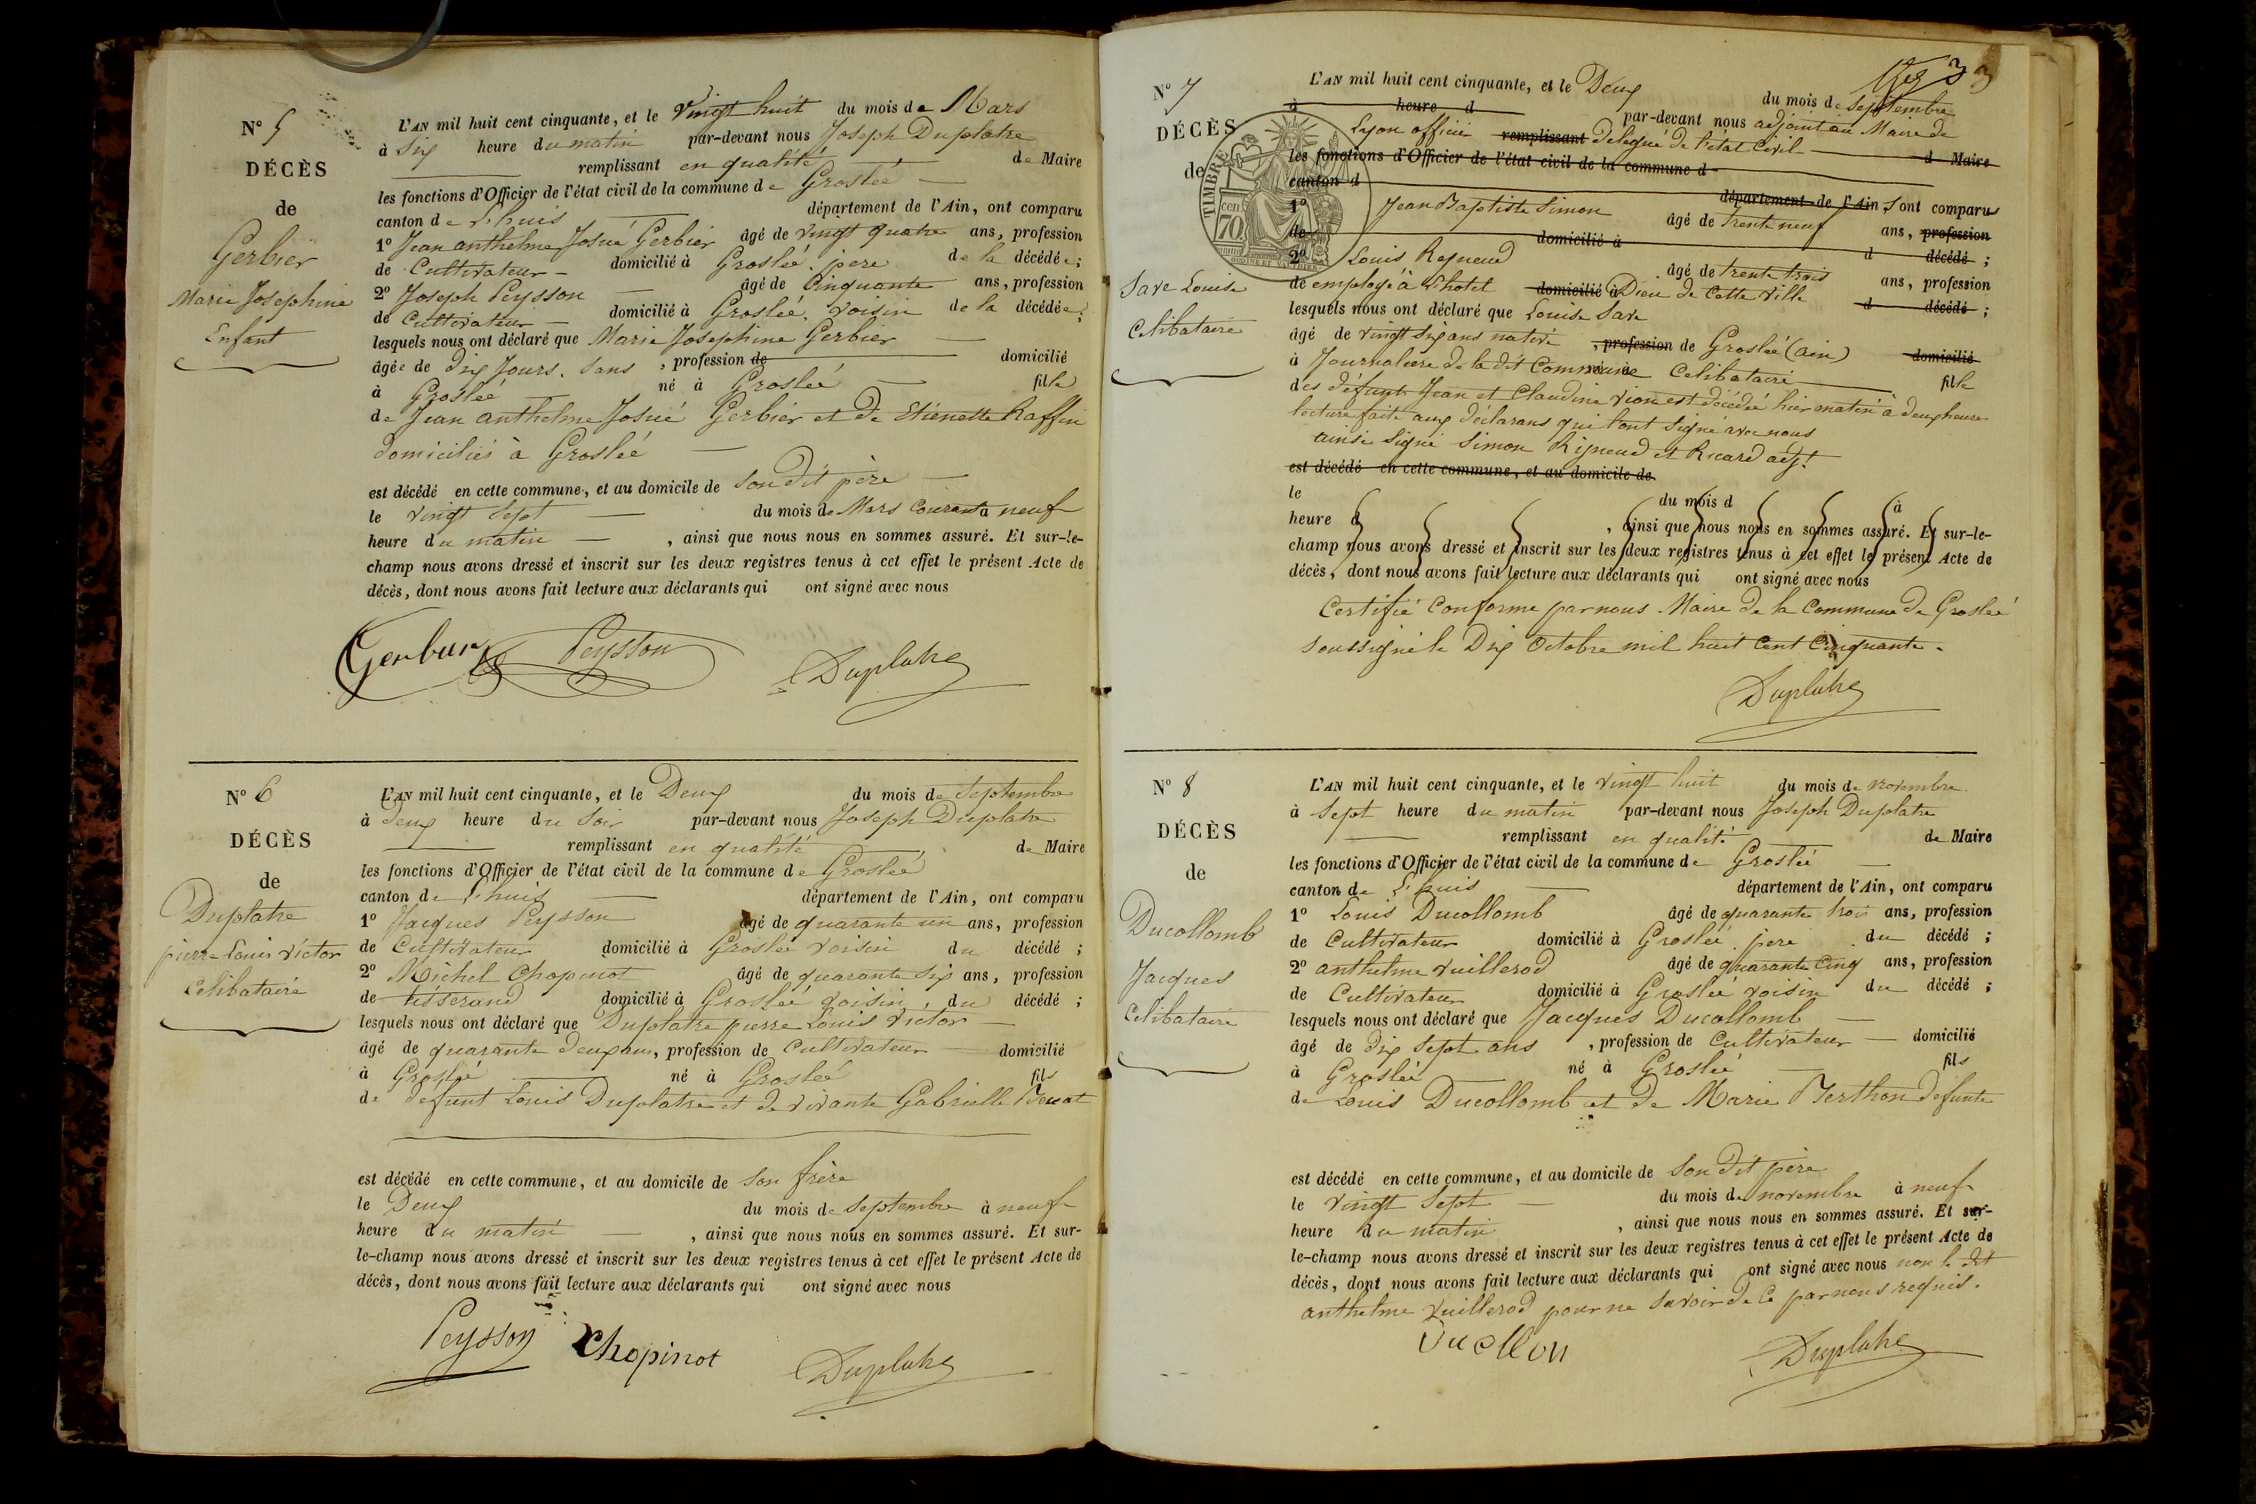 N° 5
DÉCÈS
de
Gerbier
Marie Josephine
Enfant
L'AN mil huit cent cinquante, et le Vingt huit du mois de Mars
à Six heure du matin par-devant nous Joseph Duplatre
remplissant en qualité de Maire
les fonctions d'Officier de l'état civil de la commune de Groslée
canton de Lhuis département de l'Ain, ont comparu
1° Jean anthelme Josué Gerbier âgé de vingt quatre ans, profession
de Cultivateur domicilié à Groslée. pere de la décédée;
2° Joseph Peysson âgé de Cinquante ans, profession
de Cultivateur domicilié à Groslée. voisin de la décédée;
lesquels nous ont déclaré que Marie Josephine Gerbier
âgée de dix Jours. Sans , profession de domicilié
à Groslée né à Groslée fille
de Jean anthelme Josué Gerbier et de Etienette Raffin
domiciliés à Groslée
est décédé en cette commune, et au domicile de Son dit père
le vingt Sept du mois de Mars Courant à neuf
heure du matin , ainsi que nous nous en sommes assuré. Et sur-le-
champ nous avons dressé et inscrit sur les deux registres tenus à cet effet le présent Acte de
décès, dont nous avons fait lecture aux déclarants qui ont signé avec nous
Peysson Duplatre
N° 6
DÉCÈS
de
Duplatre
pierre Louis Victor
Celibataire
L'AN mil huit cent cinquante, et le Deux du mois de Septembre
à Deux heure du Soir par-devant nous Joseph Duplatre
remplissant en qualité de Maire
les fonctions d'Officier de l'état civil de la commune de Groslée
canton de Lhuis département de l'Ain, ont comparu
1° Jacques Peysson âgé de quarante un ans, profession
de Cultivateur domicilié à Groslée voisin du décédé ;
2° Michel Chopinot âgé de quarante Six ans, profession
de tisserand domicilié à Groslée voisin, du décédé ;
lesquels nous ont déclaré que Duplatre pierre Louis Victor
âgé de quarante deux ans, profession de Cultivateur domicilié
à Groslée né à Groslée fils
de defunt Louis Duplatre et de vivante Gabrielle
est décédé en cette commune, et au domicile de Son frère
le Deux du mois de Septembre à neuf
heure du matin , ainsi que nous nous en sommes assuré. Et sur-
le-champ nous avons dressé et inscrit sur les deux registres tenus à cet effet le présent Acte de
décès, dont nous avons fait lecture aux déclarants qui ont signé avec nous
Peysson Chopinot Duplatre
3
N° 7
DÉCÈS
de
Save Louise
Celibataire
TIMBRE
70
L'AN mil huit cent cinquante, et le Deux du mois de Septembre
à heure d par-devant nous adjoint au Maire de
Lyon officié remplissant délégué de l'état Civil d Maire
les fonctions d'Officier de l'état civil de la commune d
canton d département de l'Ain, Sont comparus
1° Jean Baptiste Simon âgé de trente neuf ans, profession
de domicilié à d décédé ;
2° Louis Reyneud âgé de trente trois ans, profession
de employé à l'hotel domicilié à Dieu de Cette ville d décédé ;
lesquels nous ont déclaré que Louise Save
âgé de vingt Six ans native , profession de Groslée (ain) domicilié
à Journaliere de la dit Commune né à Celibataire fille
des defunt Jean et Claudine Vion est décédée hier matin à deux heure
lecture faite aux déclarans qui l'ont Signé avec nous
ainsi Signé Simon Rigneud et Ricard adjt
est décédé en cette commune, et au domicile de
le du mois d à
heure d , ainsi que nous nous en sommes assuré. Et sur-le-
champ nous avons dressé et inscrit sur les deux registres tenus à cet effet le présent Acte de
décès, dont nous avons fait lecture aux déclarants qui ont signé avec nous
Certifié Conforme par nous Maire de la Commune de Groslée
Soussigné le Dix Octobre mil huit Cent Cinquante.
Duplatre
N° 8
DÉCÈS
de
Ducollomb
Jacques
Celibataire
L'AN mil huit cent cinquante, et le vingt huit du mois de novembre
à Sept heure du matin par-devant nous Joseph Duplatre
remplissant en qualité de Maire
les fonctions d'Officier de l'état civil de la commune de Groslée
canton de Lhuis département de l'Ain, ont comparu
1° Louis Ducollomb âgé de quarante trois ans, profession
de Cultivateur domicilié à Groslée. pere du décédé ;
2° anthelme Vuillerod âgé de quarante Cinq ans, profession
de Cultivateur domicilié à Groslée voisin du décédé ;
lesquels nous ont déclaré que Jacques Ducollomb
âgé de dix Sept ans , profession de Cultivateur domicilié
à Groslée né à Groslée fils
de Louis Ducollomb et de Marie Berthon défunte
est décédé en cette commune, et au domicile de Son dit père
le vingt Sept du mois de novembre à neuf
heure du matin , ainsi que nous nous en sommes assuré. Et sur-
le-champ nous avons dressé et inscrit sur les deux registres tenus à cet effet le présent Acte de
décès, dont nous avons fait lecture aux déclarants qui ont signé avec nous non le dit
anthelme Vuillerod pour ne Savoir de Ce par nous requis.
Duplatre